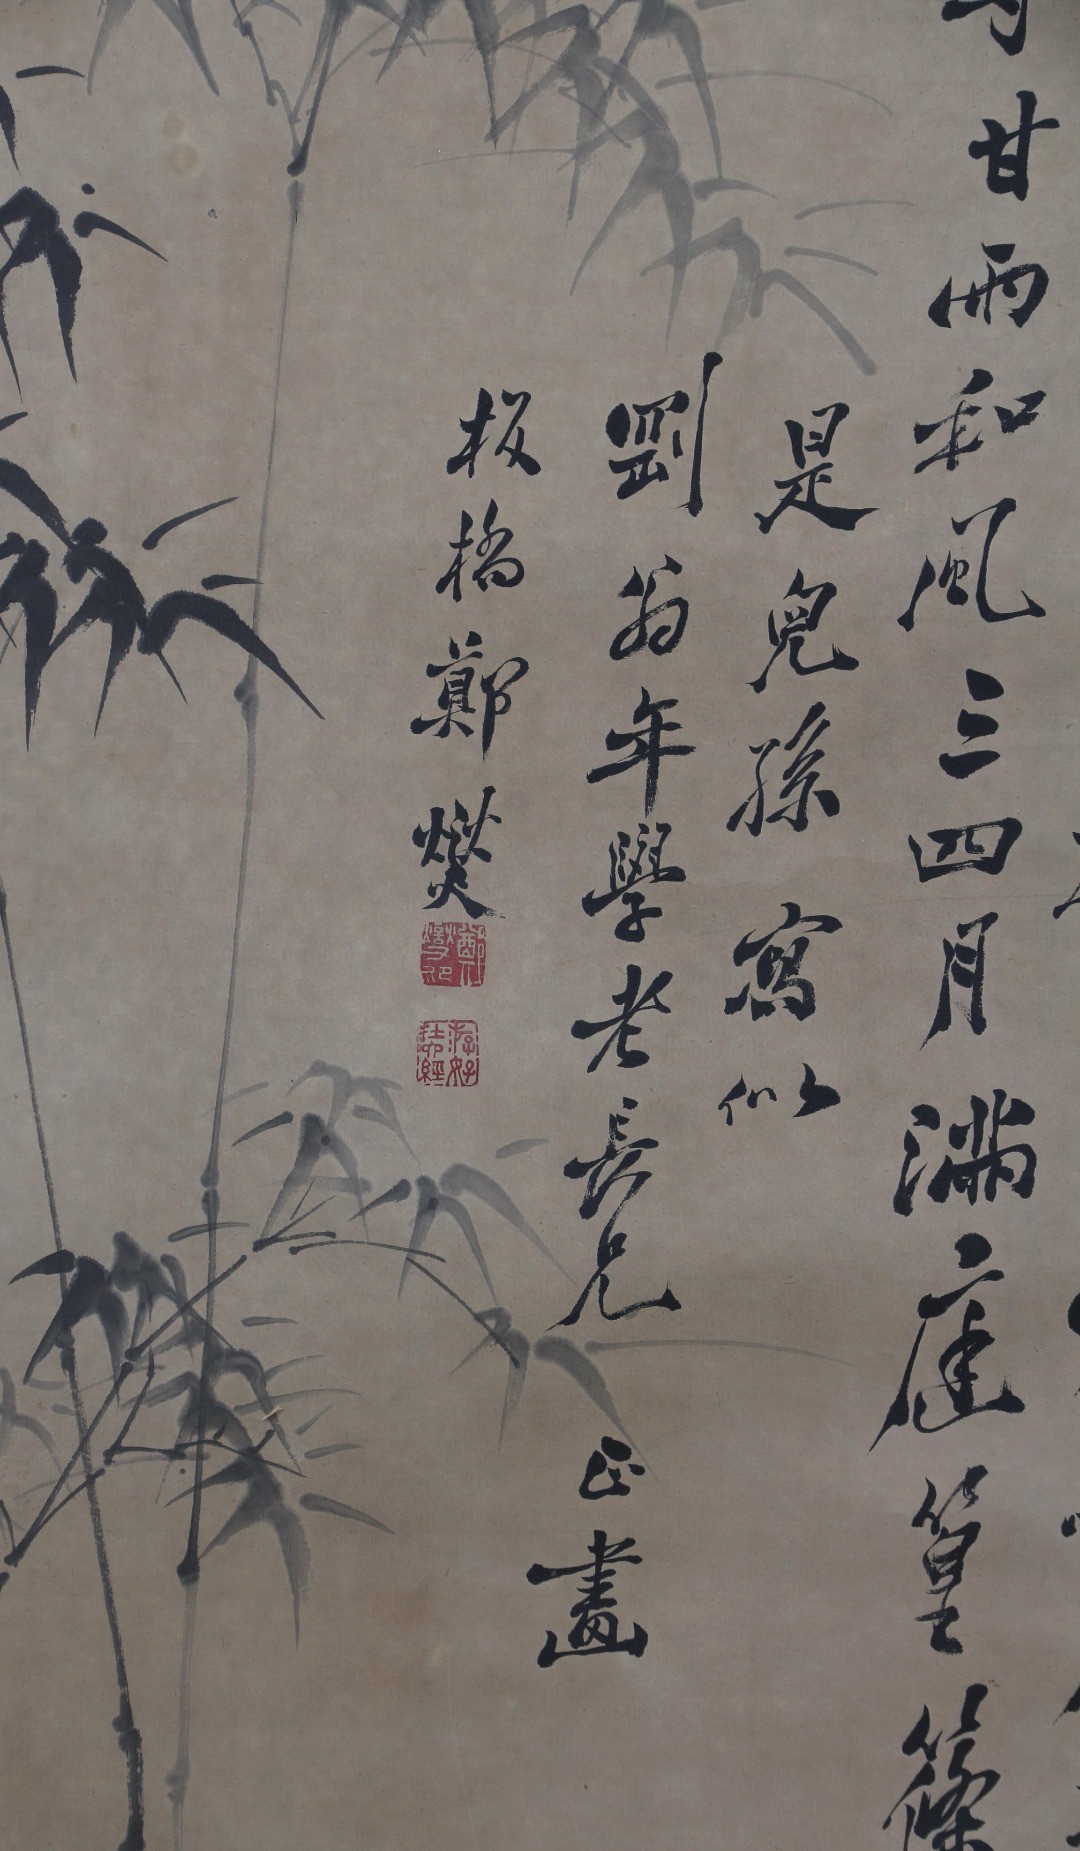 甘雨和風三四月滿庭篁篠
是兒孫寫似
劉翁年學老長兄正畫
板橋鄭燮
鄭燮印